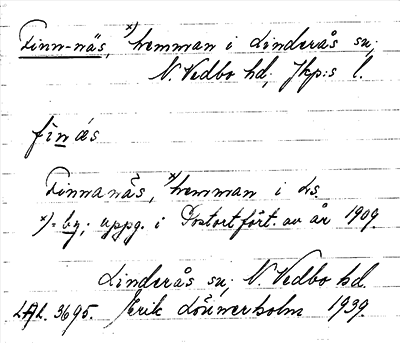 Finn-näs, x) hemman i Linderås sn;
N. Vedbo hd; Jkp:s l.
finäs
Finnanäs, x) hemman i Ls.
x) = by; uppg. i Postortsfört. av år 1909.
Linderås sn; N. Vedbo hd.
LAL. 3695. Erik Lönnerholm 1939.